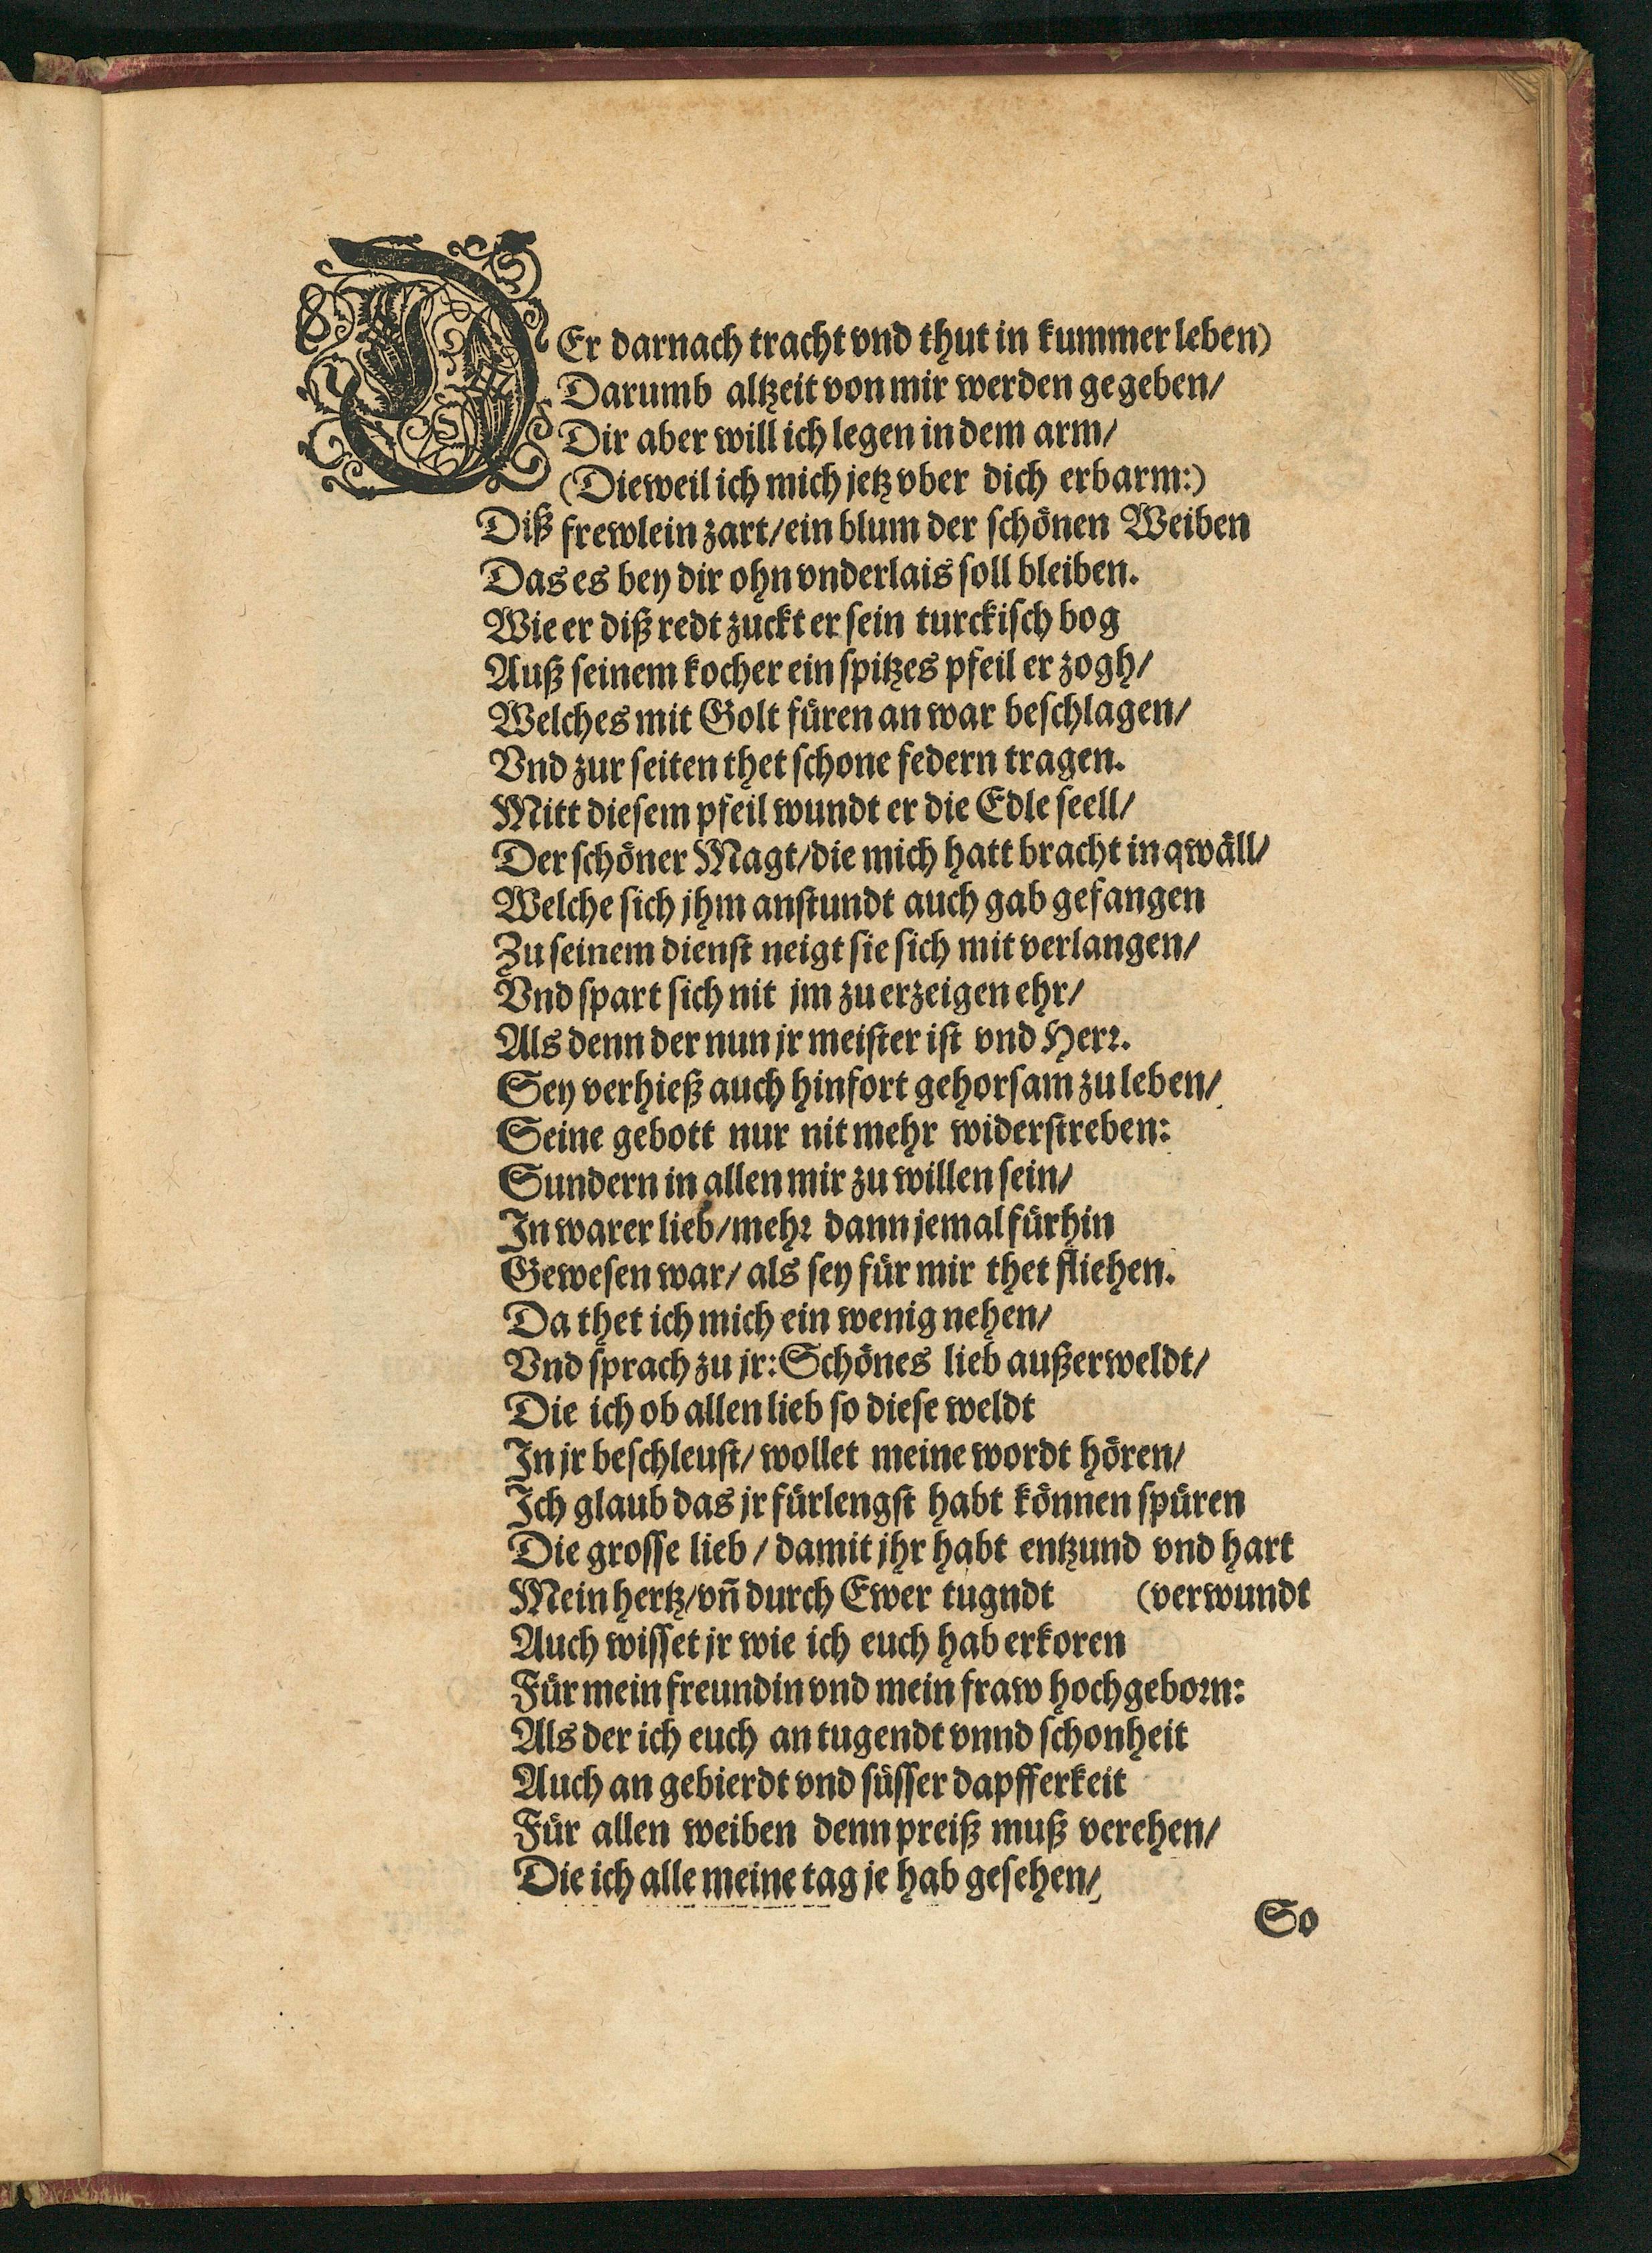 DEr darnach tracht vnd thut in kummer leben)
Darumb altzeit von mir werden gegeben/
Dir aber will ich legen in dem arm/
(Dieweil ich mich jetz vber dich erbarm:)
Diß frewlein zart/ ein blum der schönen Weiben
Das es bey dir ohn vnderlais soll bleiben.
Wie er diß redt zuckt er sein turckisch bog
Auß seinem kocher ein spitzes pfeil er zogh/
Welches mit Golt füren an war beschlagen/
Vnd zur seiten thet schone federn tragen.
Mitt diesem pfeil wundt er die Edle seell/
Der schöner Magt/ die mich hatt bracht in qwäll/
Welche sich jhm anstundt auch gab gefangen
Zu seinem dienst neigt sie sich mit verlangen/
Vnd spart sich nit jm zu erzeigen ehr/
Als denn der nun jr meister ist vnd Herr.
Sey verhieß auch hinfort gehorsam zu leben/
Seine gebott nur nit mehr widerstreben:
Sundern in allen mir zu willen sein/
In warer lieb/ mehr dann jemal fürhin
Gewesen war/ als sey für mir thet fliehen.
Da thet ich mich ein wenig nehen/
Vnd sprach zu jr: Schönes lieb außerweldt/
Die ich ob allen lieb so diese weldt
In jr beschleust/ wollet meine wordt hören/
Ich glaub das jr fürlengst habt können spüren
Die grosse lieb / damit jhr habt entzund vnd hart
Mein hertz/ vñ durch Ewer tugndt (verwundt
Auch wisset jr wie ich euch hab erkoren
Für mein freundin vnd mein fraw hochgeborn:
Als der ich euch an tugendt vnnd schonheit
Auch an gebierdt vnd süsser dapfferkeit
Für allen weiben denn preiß muß verehen/
Die ich alle meine tag je hab gesehen/
So